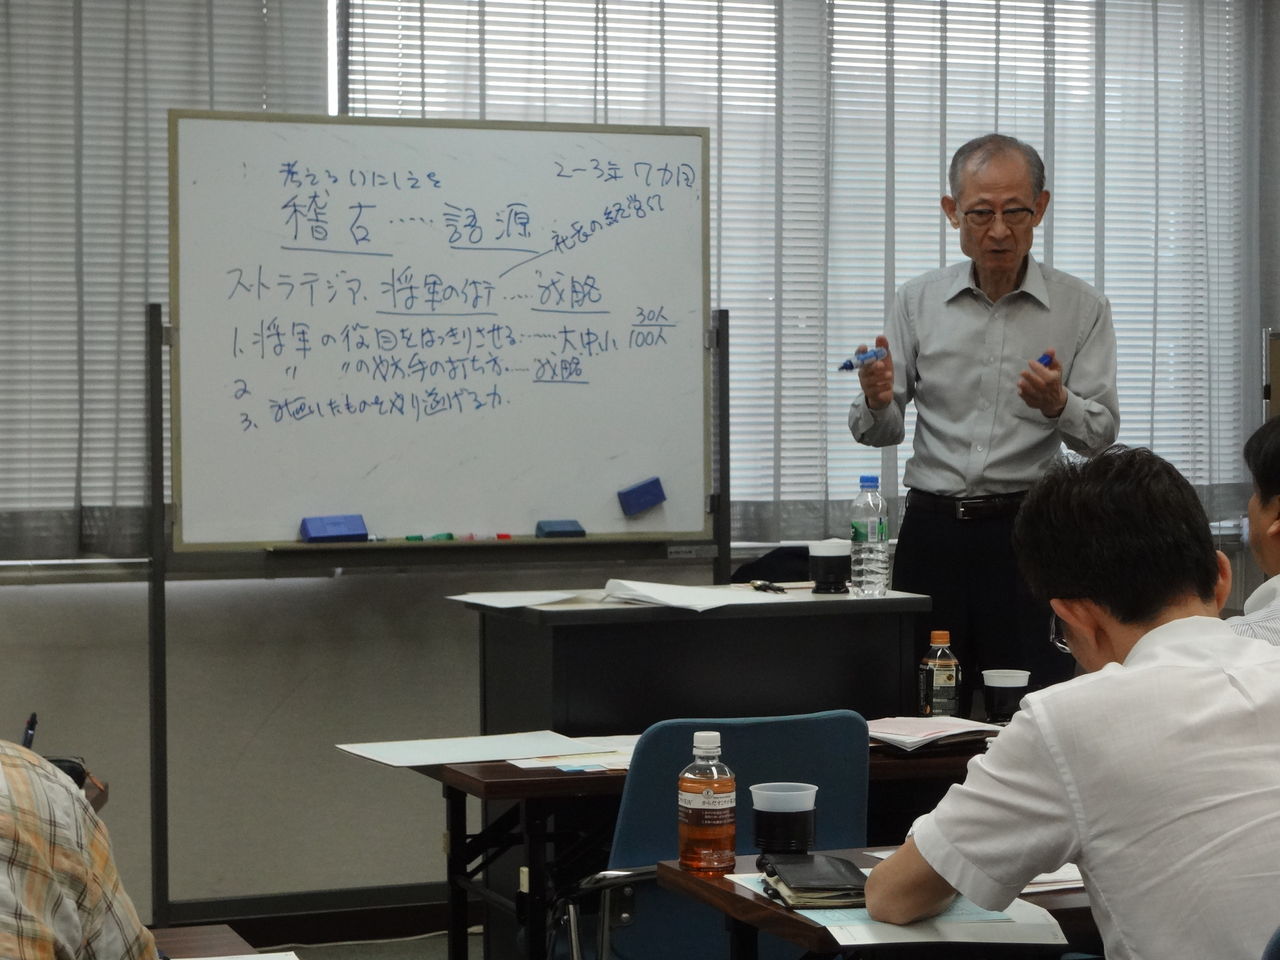 考えるいにしえを
2-3年 7カ国
稽古……語源
社長の経営
ストラテジア、将軍の仕事……戦略
1.将軍の役目をはっきりさせる……大中小 30人
100人
2 〃 〃の効率の手の打ち方……戦略
3、計画したものをやり遂げる力
からだすこやか茶W